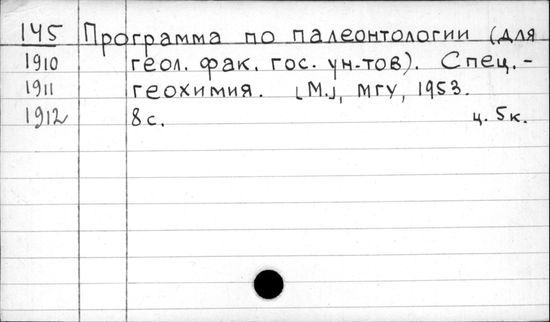 145 Программа по палеонтологии (для
1910 геол. фак. гос. ун-тов). Спец. -
1911 геохимия. [М.], МГУ, 1953.
1912 8 с. ц. 5 к.